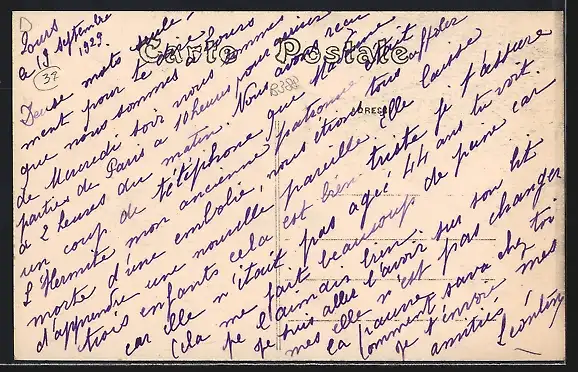 D
Tours
le 19 septembre
1929.
37
Carte Postale
ADRESSE
Deuse mots seule-
ment pour te dire
que nous sommes à Tours
de Mercredi soir nous sommes
parties de Paris a 10 heures pour arriver
a 2 heures du matin. Nous avons reçu
un coup de téléphone que Madame
L'Hermite mon ancienne patronne était
morte d'une embolie, nous étions tous
d'apprendre une nouvelle pareille. Elle laisse
trois enfants cela est bien triste je t'assure
car elle n'était pas agée 44 ans tu voit.
Cela me fait beaucoup de peine car
je l'aimais bien.
Je suis allée l'avoir sur son lit
mes elle n'est pas changer
la pauvre.
Comment sava chez toi
je t'envoie mes
amitiés
Léontine